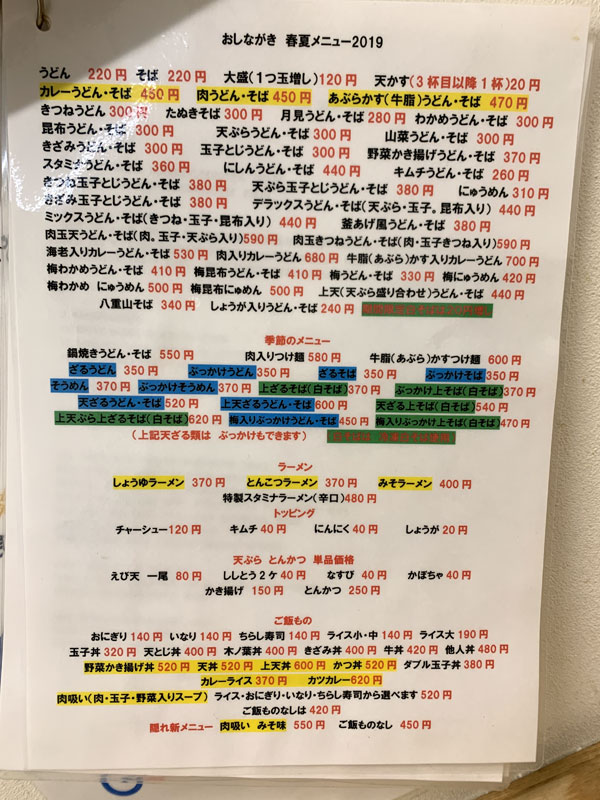 おしながき 春夏メニュー2019
うどん 220円 そば 220円 大盛(1つ玉増し)120円 天かす(3杯目以降1杯)20円
カレーうどん・そば 450円 肉うどん・そば 450円 あぶらかす(牛脂)うどん・そば 470円
きつねうどん 300円 たぬきそば 300円 月見うどん・そば 280円 わかめうどん・そば 300円
昆布うどん・そば 300円 天ぷらうどん・そば 300円 山菜うどん・そば 300円
きざみうどん・そば 300円 玉子とじうどん・そば 300円 野菜かき揚げうどん・そば 370円
スタミナうどん・そば 360円 にしんうどん・そば 440円 キムチうどん・そば 260円
きつね玉子とじうどん・そば 380円 天ぷら玉子とじうどん・そば 380円 にゅうめん 310円
きざみ玉子とじうどん・そば 380円 デラックスうどん・そば(天ぷら・玉子。昆布入り) 440円
ミックスうどん・そば(きつね・玉子・昆布入り) 440円 釜あげ風うどん・そば 380円
肉玉天うどん・そば(肉。玉子・天ぷら入り)590円 肉玉きつねうどん・そば(肉・玉子きつね入り)590円
海老入りカレーうどん・そば 530円 肉入りカレーうどん 680円 牛脂(あぶら)かす入りカレーうどん 700円
梅わかめうどん・そば 410円 梅昆布うどん・そば 410円 梅うどん・そば 330円 梅にゅうめん 420円
梅わかめ にゅうめん 500円 梅昆布にゅめん 500円 上天(天ぷら盛り合わせ)うどん・そば 440円
八重山そば 340円 しょうが入りうどん・そば 240円
季節のメニュー
鍋焼きうどん・そば 550円 肉入りつけ麺 580円 牛脂(あぶら)かすつけ麺 600円
ざるうどん 350円 ぶっかけうどん 350円 ざるそば 350円 ぶっかけそば 350円
そうめん 370円 ぶっかけそうめん 370円 上ざるそば(白そば)370円 ぶっかけ上そば(白そば)370円
天ざるうどん・そば 520円 上天ざるうどん・そば 600円 天ざる上そば(白そば)540円
上天ぷら上ざるそば(白そば)620円 梅入りぶっかけうどん・そば 450円 梅入りぶっかけ上そば(白そば)470円
(上記天ざる類は ぶっかけもできます)
ラーメン
しょうゆラーメン 370円 とんこつラーメン 370円 みそラーメン 400円
特製スタミナラーメン(辛口)480円
トッピング
チャーシュー120円 キムチ 40円 にんにく 40円 しょうが 20円
天ぷら とんかつ 単品価格
えび天 一尾 80円 ししとう2ケ 40円 なすび 40円 かぼちゃ 40円
かき揚げ 150円 とんかつ 250円
ご飯もの
おにぎり 140円 いなり 140円 ちらし寿司 140円 ライス小・中 140円 ライス大 190円
玉子丼 320円 天とじ丼 400円 木ノ葉丼 400円 きざみ丼 400円 牛丼 420円 他人丼 480円
野菜かき揚げ丼 520円 天丼 520円 上天丼 600円 かつ丼 520円 ダブル玉子丼 380円
カレーライス 370円 カツカレー620円
肉吸い(肉・玉子・野菜入りスープ) ライス・おにぎり・いなり・ちらし寿司から選べます 520円
ご飯ものなしは 420円
隠れ新メニュー 肉吸い みそ味 550円 ご飯ものなし 450円